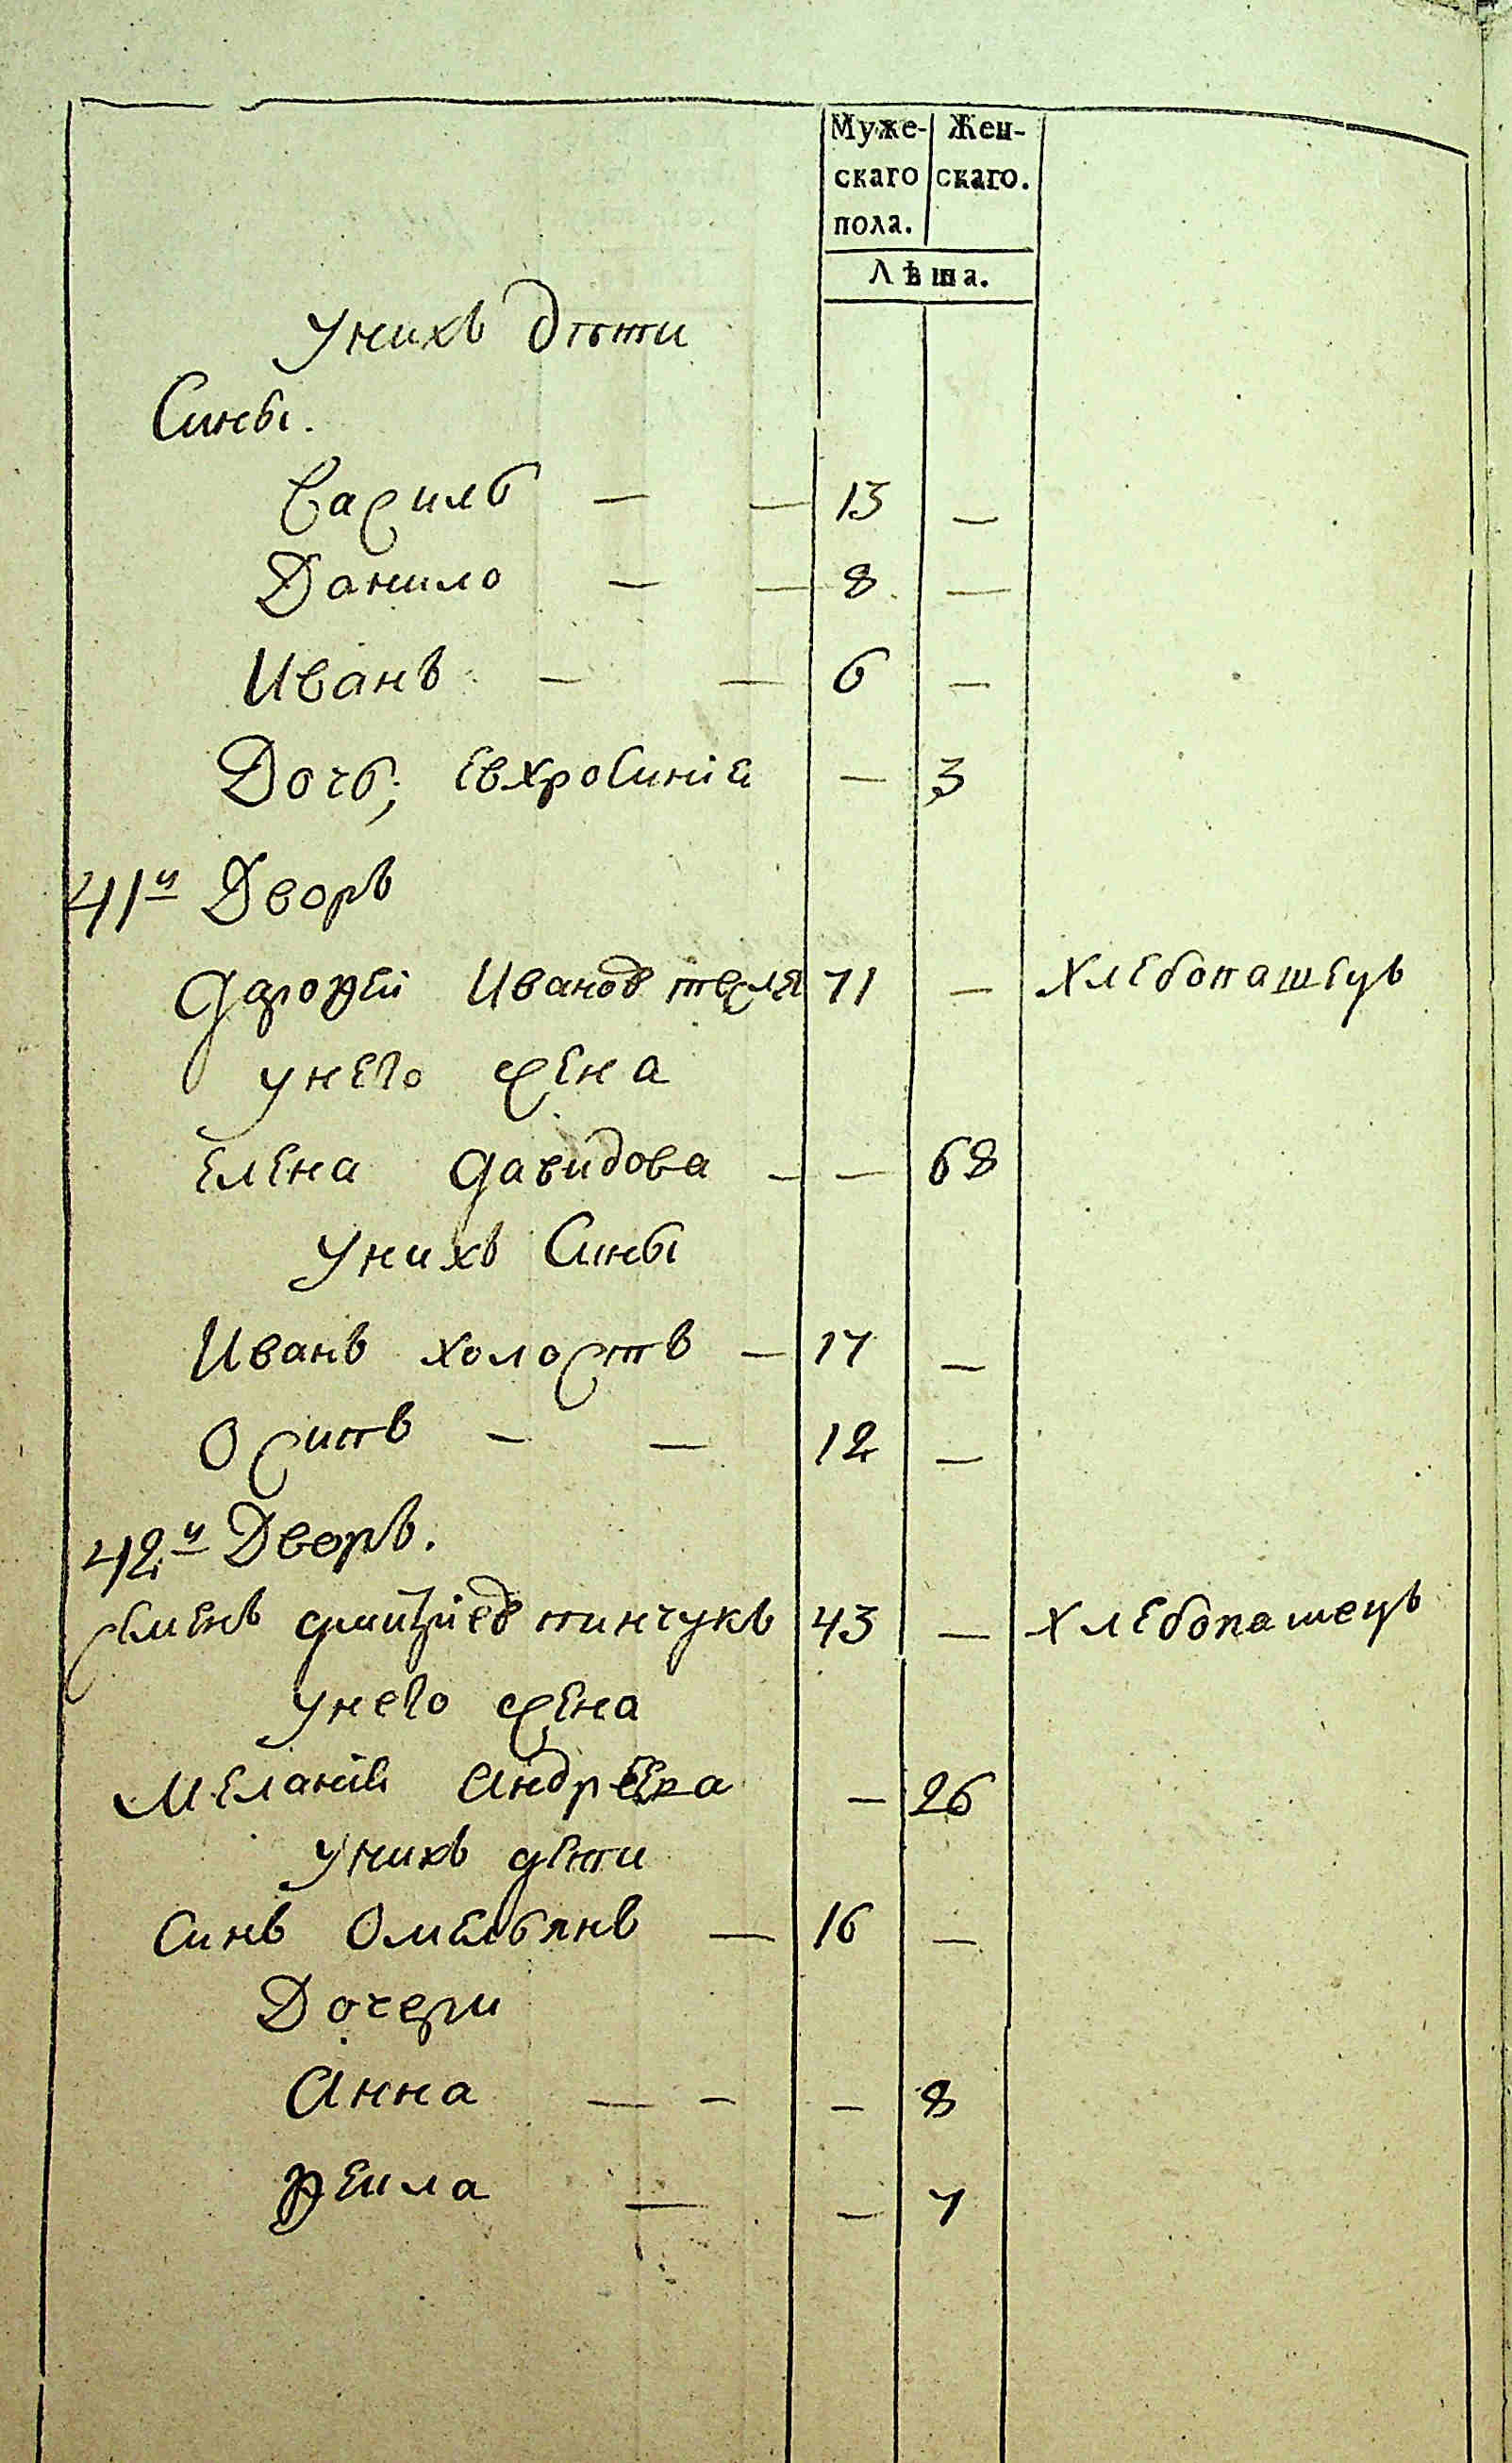 Муже- Жен-
скаго скаго.
пола.
Лѣта.
Унихъ дѣти
Сини.
Василь — — 13 —
Данило — — 8 —
Иванъ — — 6 —
Дочь, Евхросинія — 3
41й Дворъ
Дорофей Иванов тесля 71 — Хлебопашецъ
унего жена
Елена Давидова — — 68
Унихъ Сини
Иванъ холостъ — 17 —
Осипъ — — 12 —
42й Дворъ.
Семенъ Дмитріев пинчукъ 43 — Хлебопашецъ
унего жена
Меланія Андреева — 26
Унихъ дети
Синъ Омельянъ — 16 —
Дочери
Анна — — — 8
— — 7